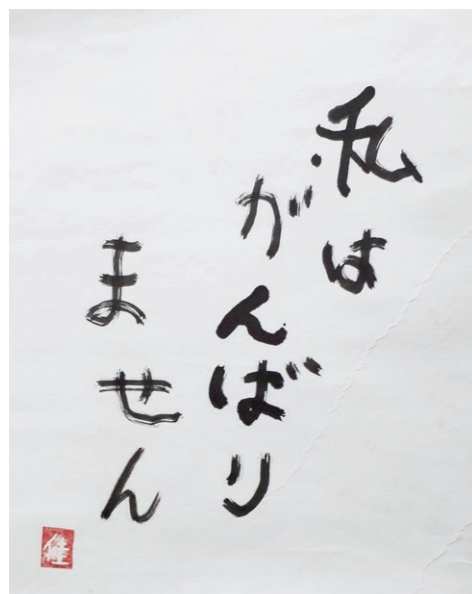 私は
がんばり
ません